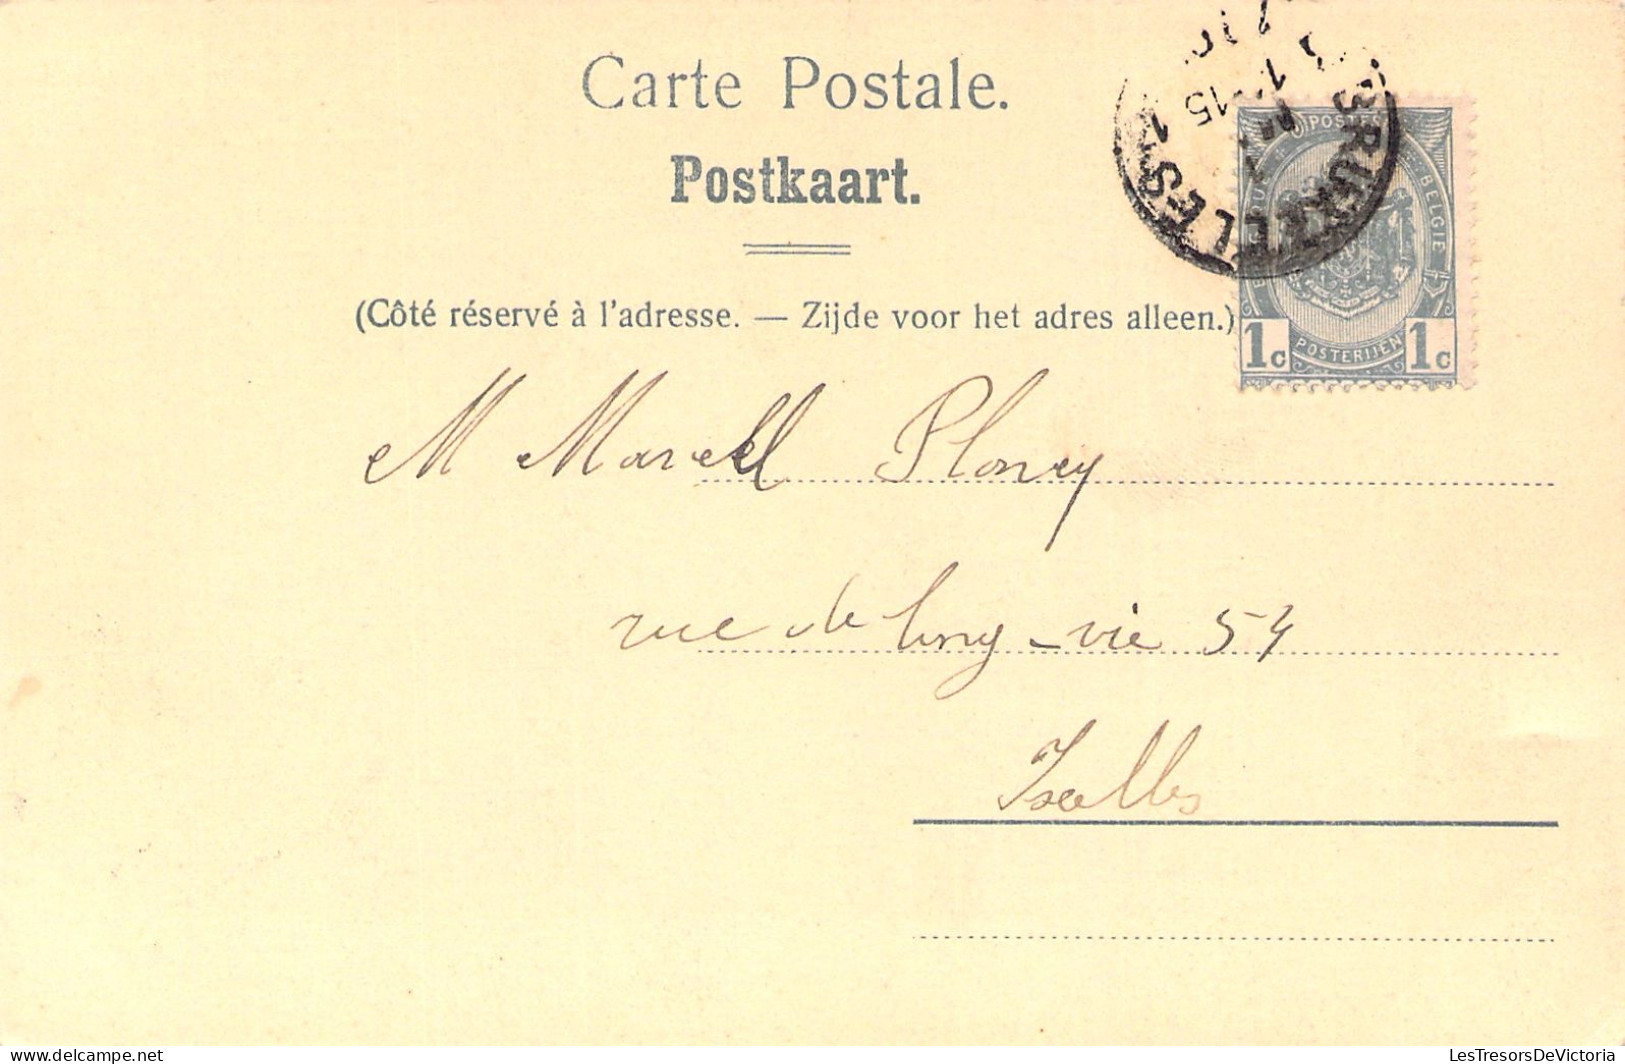 Carte Postale.
Postkaart.
(Côté réservé à l'adresse. — Zijde voor het adres alleen.)
BRUXELLES 1
15
POSTES
BELGIE
1c POSTERIJEN 1c
M Marcel
rue de long-vie 54
Ixelles
LesTresorsDeVictoria
delcampe.net